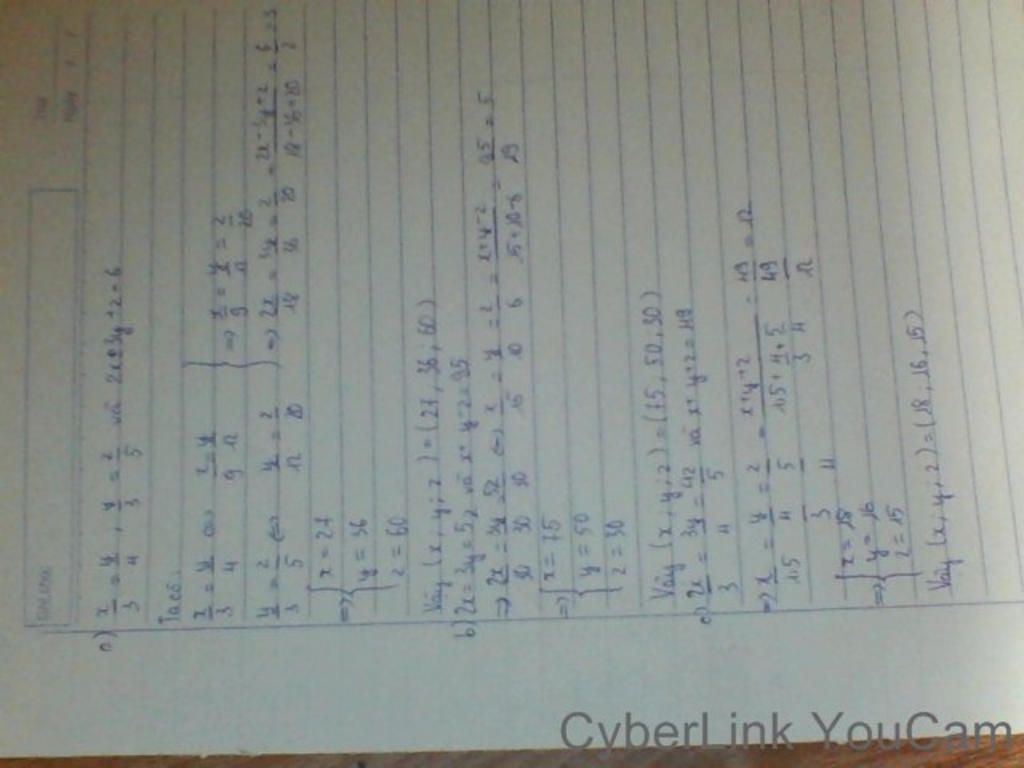 a) x/3 = y/4 , y/3 = z/5 và 2x ± 3y + z = 6
Ta có :
x/3 = y/4 <=> x/9 = y/12
y/3 = z/5 <=> y/12 = z/20
=> x/9 = y/12 = z/20
=> 2x/18 = 3y/36 = z/20 = 2x - 3y + z/18 - 36 + 20 = 6/2 = 3
=> x = 27
y = 36
z = 60
Vậy (x, y; z) = (27, 36, 60)
b) 2x = 3y = 5z và x + y - z = 95
=> 2x/30 = 3y/30 = 5z/30 <=> x/15 = y/10 = z/6 = x+y-z/15+10-6 = 95/19 = 5
=> x = 75
y = 50
z = 30
Vậy (x, y; z) = (75, 50, 30)
c) 2x/3 = 3y/4 = 4z/5 và x + y + z = 49
=> x/1.5 = y/4/3 = z/5/4 = x+y+z/1.5 + 4/3 + 5/4 = 49/49/12 = 12
=> x = 18
y = 16
z = 15
Vậy (x, y, z) = (18, 16, 15)
CyberLink YouCam